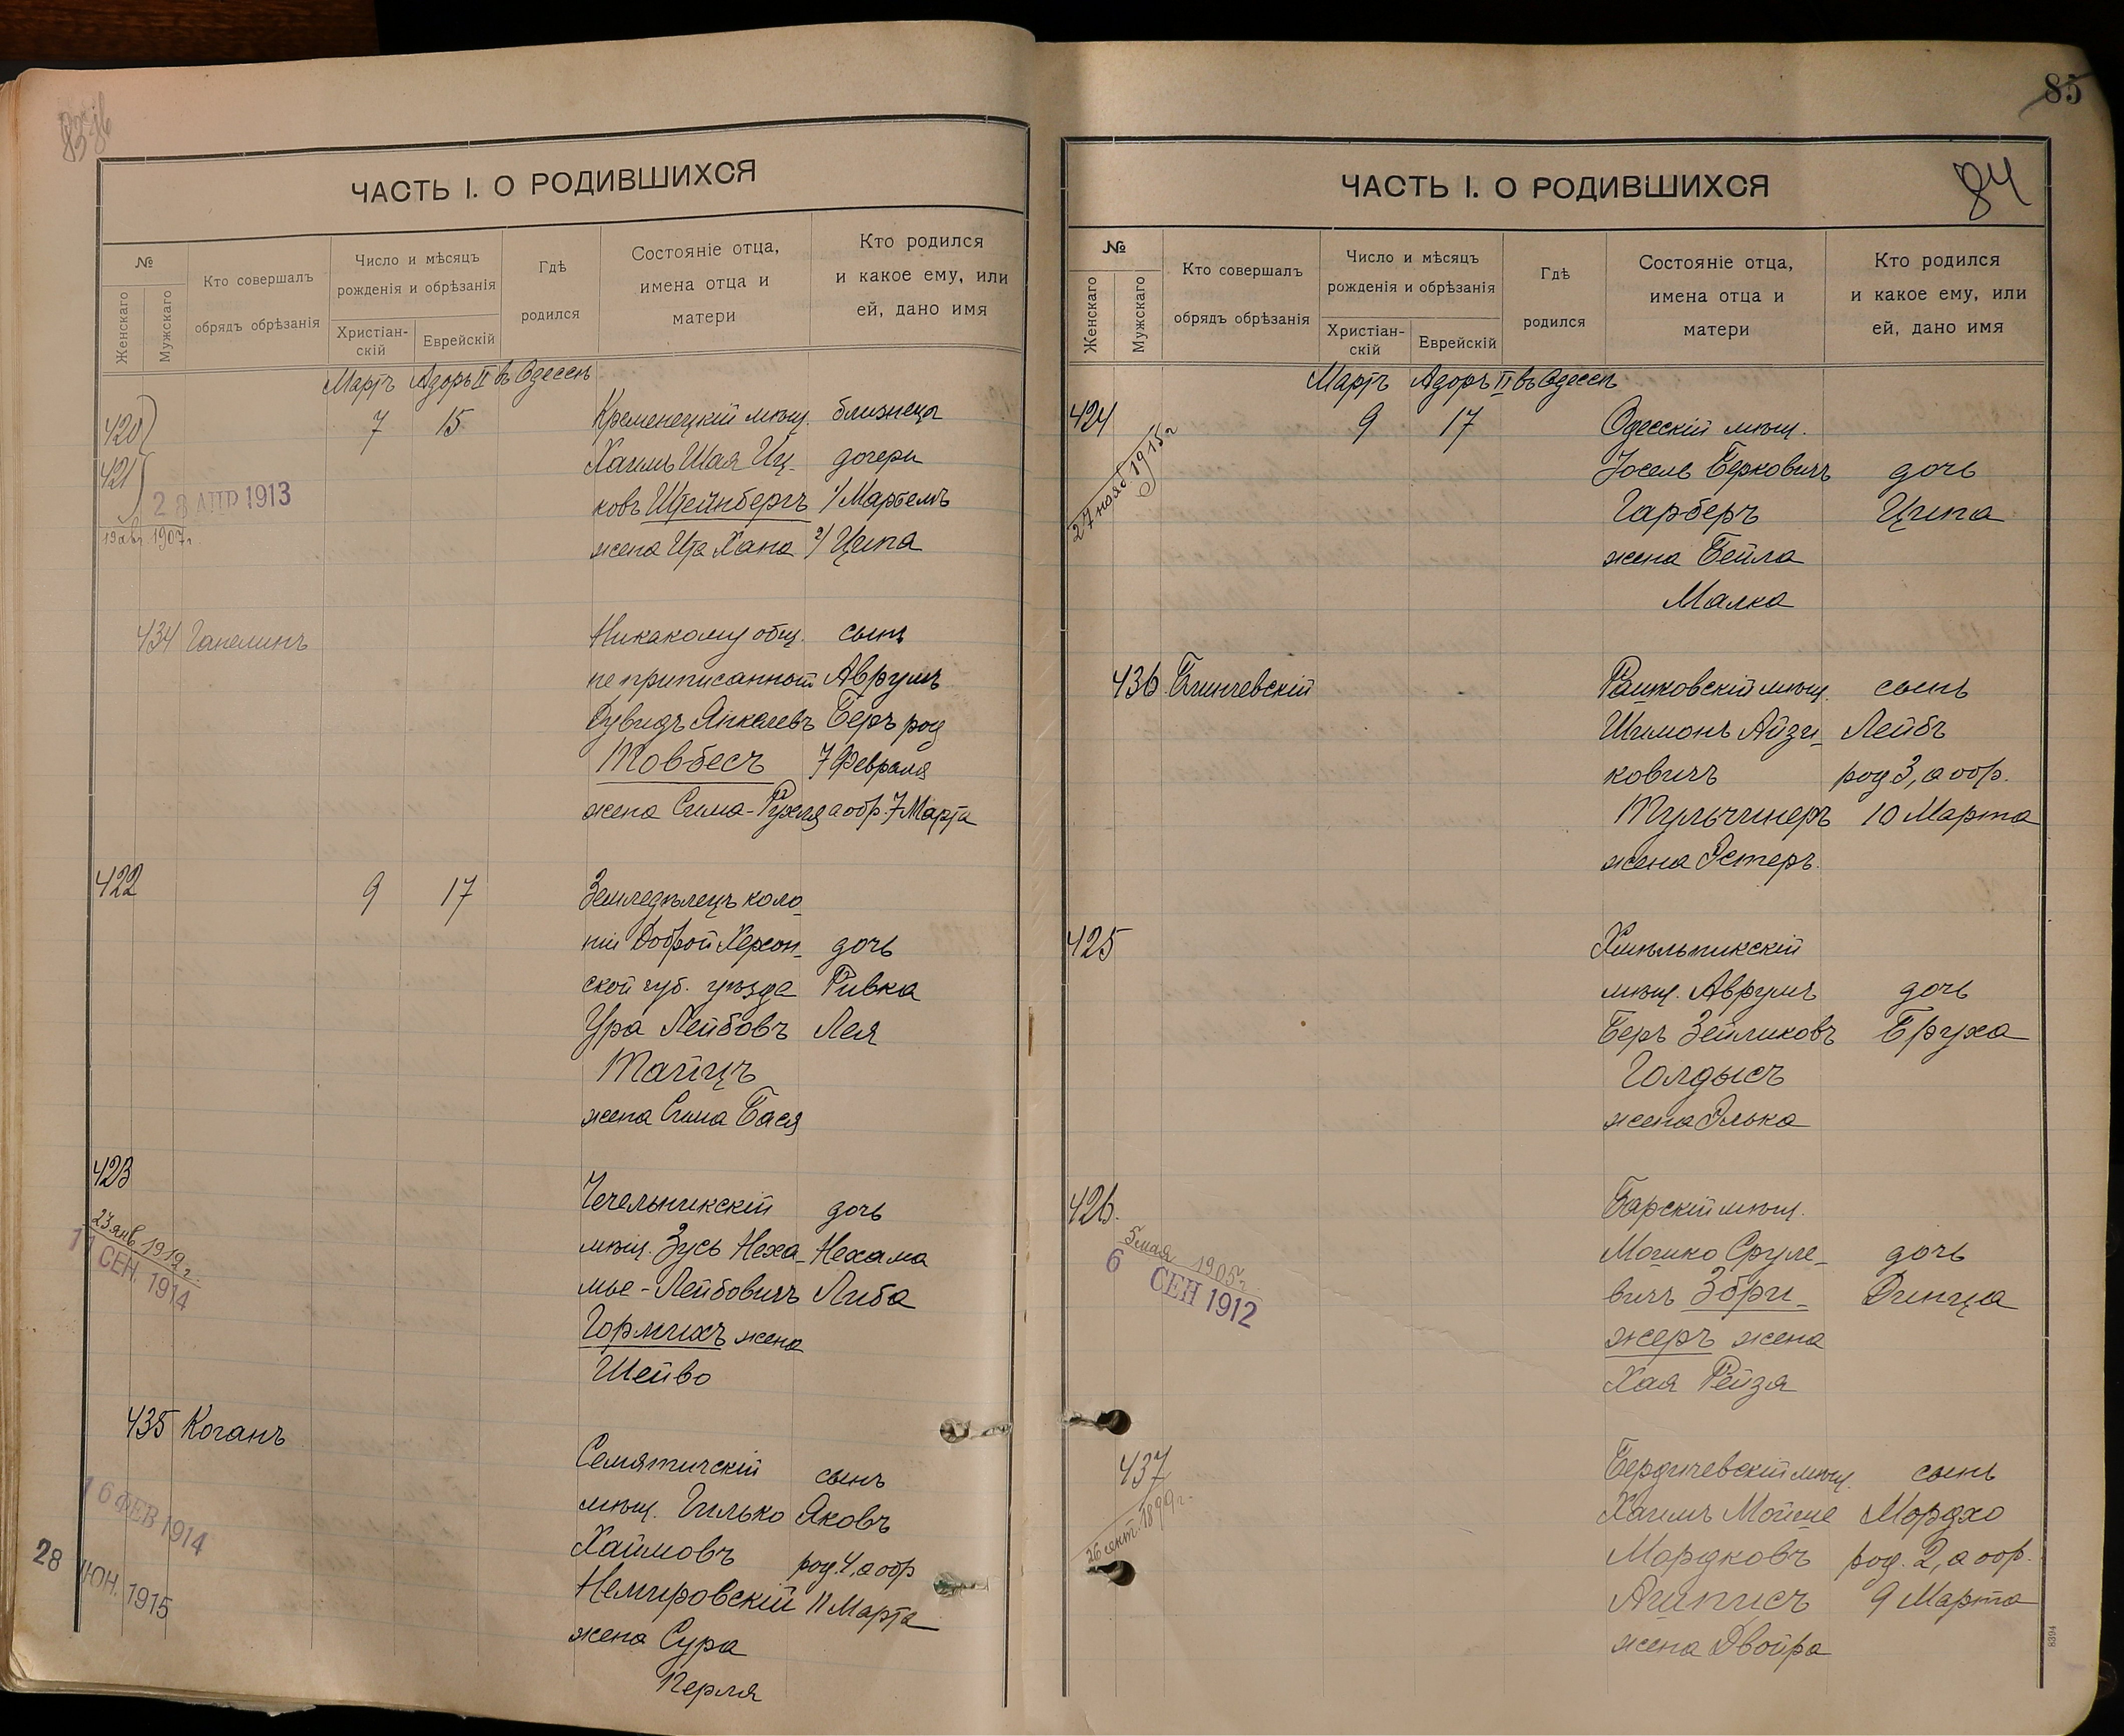 83об
ЧАСТЬ I. О РОДИВШИХСЯ
№
Женскаго
Мужскаго
Кто совершалъ
обрядъ обрѣзанія
Число и мѣсяцъ
рожденія и обрѣзанія
Христіан-
скій
Еврейскій
Гдѣ
родился
Состояніе отца,
имена отца и
матери
Кто родился
и какое ему, или
ей, дано имя
Мартъ Адоръ II въ Одессѣ
420
421
28 АПР 1913
19 авг. 1907 г.
7 15
Кременецкій мѣщ. близнецы
Хаимъ Шая Иц- дочери
ковъ Штейнбергъ 1/
жена Ита Хана 2/ Ципа
434 Гапелинъ
Никакому общ. сынъ
не приписанный Аврумъ
Дувидъ Янкелевъ Беръ род
Товбесъ 7 Февраля
жена Сима-Рухля а обр. 7 Марта
422 9 17
Земледѣлецъ коло-
ніи Доброй Херсон- дочь
ской губ. уѣзда Ривка
Ура Лейбовъ Лея
Тайцъ
жена Сима Бася
423
23 янв. 1919 г.
11 СЕН. 1914
Чечельникскій дочь
мѣщ. Зусь Неха- Нехама
мье-Лейбовичъ Либа
жена
Шейва
435 Коганъ
16 ФЕВ 1914
28 ІЮН. 1915
Семятичскій сынъ
мѣщ. Гилько Яковъ
Хаимовъ род. 4, а обр
Немировскій 11 Марта
жена Сура
Перля
85
84
ЧАСТЬ I. О РОДИВШИХСЯ
№
Женскаго
Мужскаго
Кто совершалъ
обрядъ обрѣзанія
Число и мѣсяцъ
рожденія и обрѣзанія
Христіан-
скій
Еврейскій
Гдѣ
родился
Состояніе отца,
имена отца и
матери
Кто родился
и какое ему, или
ей, дано имя
Мартъ Адоръ II въ Одессѣ
424 9 17
27 нояб. 1915 г
Одесскій мѣщ.
Іосель Берковичъ дочь
Гарберъ Ципа
жена Бейла
Малка
436 Блинчевскій
Рашковскій мѣщ. сынъ
Шимонъ Айзи- Лейбъ
ковичъ род 3, а обр.
Тульчинеръ 10 Марта
жена Эстеръ.
425
Хмѣльникскій
мѣщ. Аврумъ дочь
Беръ Зейликовъ Бруха
Голдысъ
жена Элька
426.
5 мая 1905 г.
6 СЕН 1912
Барскій мѣщ.
Мошко Сруле- дочь
вичъ Збри- Динца
жеръ жена
Хая Рейзя
437
26 окт. 1899 г.
Бердичевскій мѣщ. сынъ
Хаимъ Мойше Мордхо
Мордковъ род. 2, а обр.
9 Марта
жена Двойра
8394